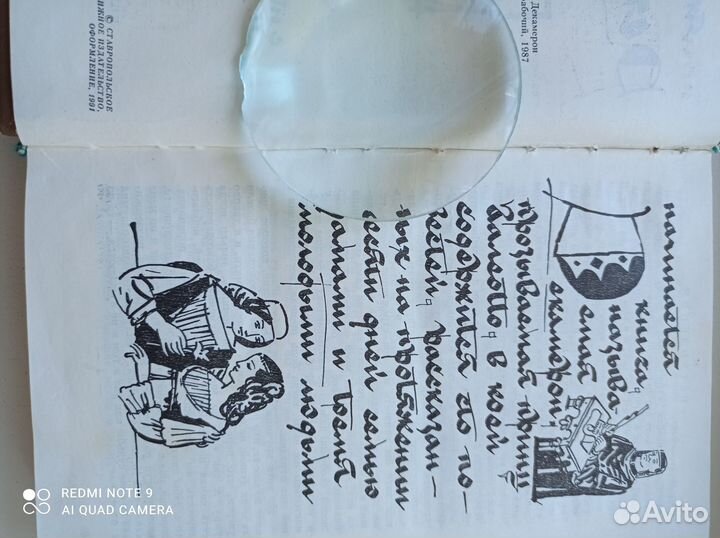 Декамерон
рабочий, 1987
© СТАВРОПОЛЬСКОЕ
КНИЖНОЕ ИЗДАТЕЛЬСТВО,
ОФОРМЛЕНИЕ, 1991
начинается
книга,
называ-
емая
Декамерон,
прозываемая принц
Галеотто, в коей
содержится сто по-
вестей, рассказан-
ных на протяжении
десяти дней семью
дамами и тремя
молодыми людьми
REDMI NOTE 9
AI QUAD CAMERA
Avito